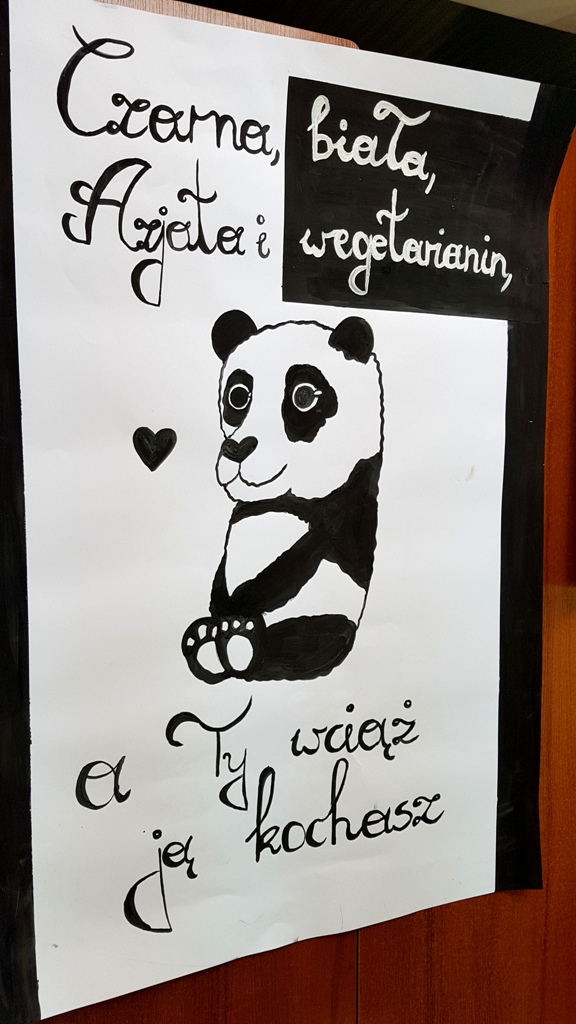 Czarna, biała,
Azjata i wegetarianin,
a Ty wciąż
ją kochasz